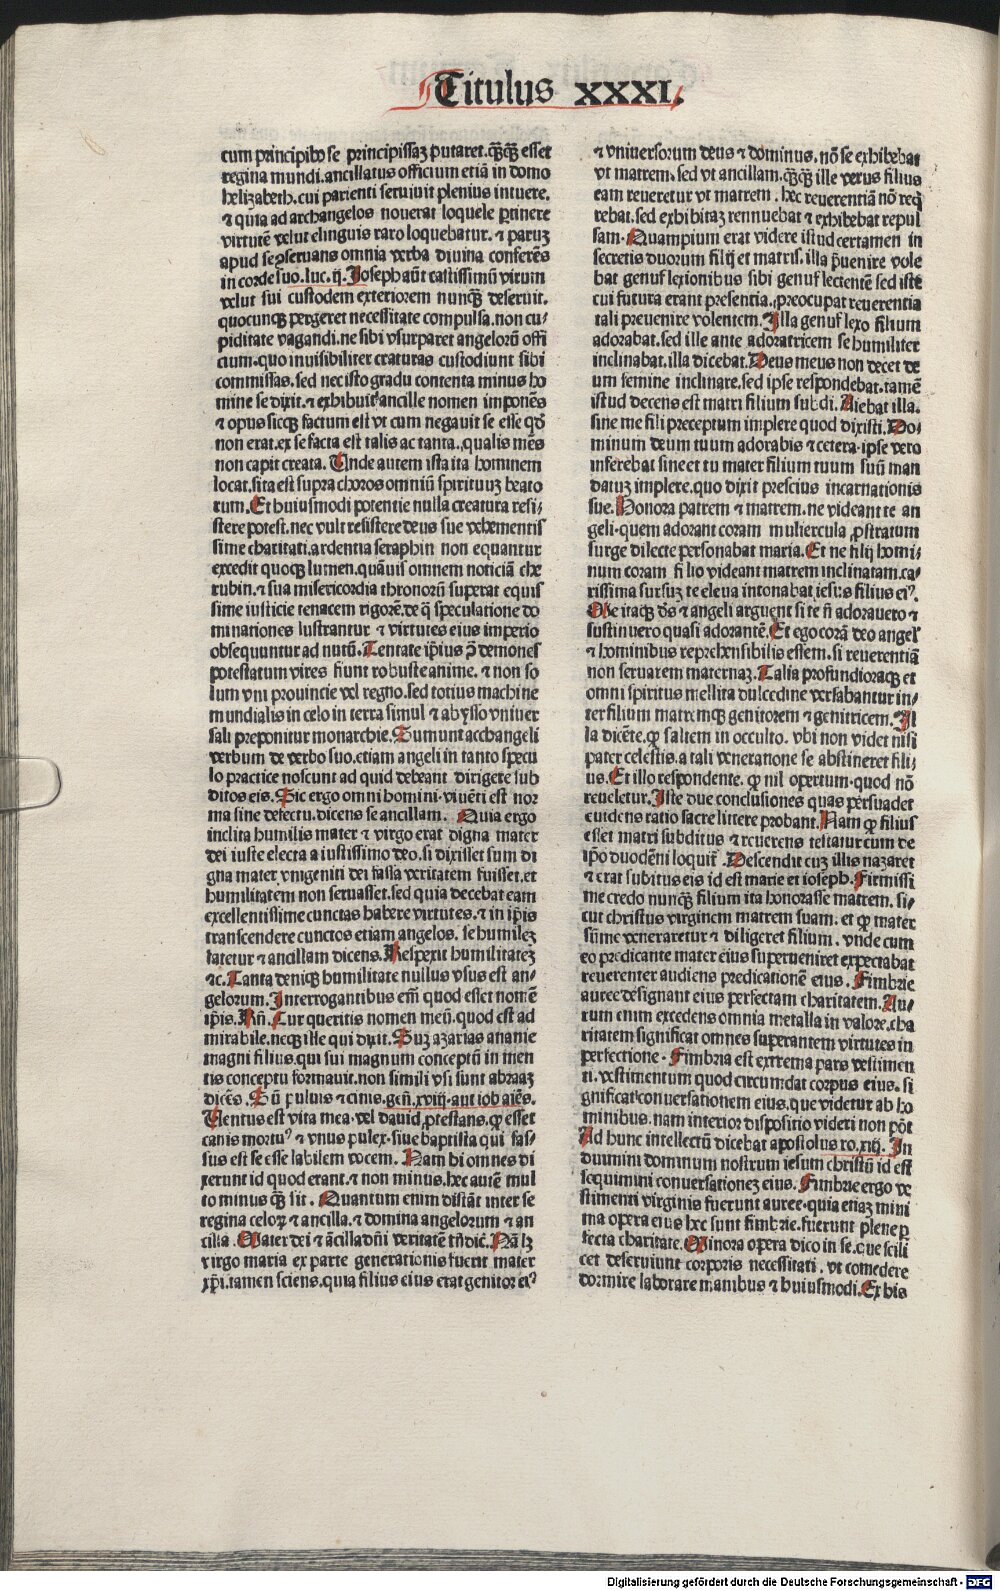 Titulus XXXI.
cum principibꝰ se principissaꝫ putaret. qꝫqꝫ esset
regina mundi. ancillatus officium etiā in domo
helizabeth. cui parienti seruiuit plenius intuere.
⁊ quia ad archangelos nouerat loquele ꝑtinere
virtutē velut elinguis raro loquebatur. ⁊ paruꝫ
apud se ꝯseruans omnia verba diuina conferēs
in corde suo. luc. ij. Joseph aūt castissimū virum
velut sui custodem exteriorem nunqꝫ deseruit.
quocunqꝫ pergeret necessitate compulsa. non cu⸗
piditate vagandi. ne sibi vsurparet angelorū offi
cium. quo inuisibiliter craturas custodiunt sibi
commissas. sed nec isto gradu contenta minus ho
mine se dixit. ⁊ exhibuit ancille nomen imponēs
⁊ opus siccqꝫ factum est vt cum negauit se esse qđ
non erat. ex se facta est talis ac tanta. qualis mēs
non capit creata. Unde autem ista ita hominem
locat. sita est supra choros omniū spirituuꝫ beato
rum. Et huiusmodi potentie nulla creatura resi⸗
stere potest. nec vult resistere deus sue vehementis
sime charitati. ardentia seraphin non equantur
excedit quoqꝫ lumen. quāuis omnem noticiā che
rubin. ⁊ sua misericordia thronorū superat equis
sime iusticie tenacem rigorē. de q̄ speculatione do
minationes lustrantur ⁊ virtutes eius imperio
obsequuntur ad nutū. Tentate ip̄ius ꝑ demones
potestatum vires fiunt robuste anime. ⁊ non so
lum vni prouincie vel regno. sed totius machine
mundialis in celo in terra simul ⁊ abysso vniuer
sali preponitur monarchie. Sumunt acchangeli
verbum de verbo suo. etiam angeli in tanto specu
lo practice noscunt ad quid debeant dirigere sub
ditos eis. Sic ergo omni homini viuēti est nor
ma sine defectu. dicens se ancillam. Quia ergo
inclita humilis mater ⁊ virgo erat digna mater
dei iuste electa a iustissimo deo. si dixisset sum di
gna mater vnigeniti dei fassa veritatem fuisset. et
humilitatem non seruasset. sed quia decebat eam
excellentissime cunctas habere virtutes. ⁊ in ip̄is
transcendere cunctos etiam angelos. se humileꝫ
fatetur ⁊ ancillam dicens. Respexit humilitateꝫ
⁊c. Tanta deniqꝫ humilitate nullus vsus est an⸗
gelorum. Interrogantibus em̄ quod esset nomē
ip̄is. Rn̄. Cur queritis nomen meū. quod est ad
mirabile. neqꝫ ille qui dixit. Suꝫ azarias ananie
magni filius. qui sui magnum conceptū in men
tis conceptu formauit. non simili vsi sunt abraaꝫ
dicēs. Sū puluis ⁊ cinis. gen̄. xviij. aut iob aiēs.
Uentus est vita mea. vel dauid ꝓtestans. ꝙ esset
canis mortuꝰ ⁊ vnus pulex. siue baptista qui fas⸗
sus est se esse labilem vocem. Nam hi omnes di
xerunt id quod erant. ⁊ non minus. hec autē mul
to minus qꝫ sit. Quantum enim distāt inter se
regina celoꝝ ⁊ ancilla. ⁊ domina angelorum ⁊ an
cilla. Mater dei ⁊ ācilla dn̄i veritatē tn̄ dic̄. Nā lꝫ
virgo maria ex parte generationis fuerit mater
xp̄i. tamen sciens. quia filius eius erat genitor eiꝰ
⁊ vniuersorum deus ⁊ dominus. nō se exhibebat
vt matrem. sed vt ancillam. qꝫqꝫ ille verus filius
eam reueretur vt matrem. hec reuerentiā nō req̄
rebat. sed exhibitaꝫ rennuebat ⁊ exhibebat repul
sam. Quampium erat videre istud certamen in
secretis duorum filij et matris. illa p̄uenire vole
bat genuflexionibus sibi genuflectentē sed iste
cui futura erant presentia. preocupat reuerentia
tali preuenire volentem. Illa genuflexo filium
adorabat. sed ille ante adoratricem se humiliter
inclinabat. illa dicebat. Deus meus non decet de
um femine inclinare. sed ipse respondebat. tamē
istud decens est matri filium subdi. Aiebat illa.
sine me fili preceptum implere quod dixisti. Do⸗
minum deum tuum adorabis ⁊ cetera. ipse vero
inferebat sine et tu mater filium tuum suū man
datuꝫ implere. quo dixit prescius incarnationis
sue. Honora patrem ⁊ matrem. ne videant te an
geli. quem adorant coram muliercula ꝓstratum
surge dilecte personabat maria. Et ne filij homi⸗
num coram filio videant matrem inclinatam. ca⸗
rissima sursuꝫ te eleua intonabat iesus filius eiꝰ.
Me itaqꝫ dꝰs ⁊ angeli arguent si te n̄ adorauero ⁊
sustinuero quasi adorantē. Et ego corā deo angel'
⁊ hominibus reprehensibilis essem. si reuerentiā
non seruarem maternaꝫ. Talia profundioraqꝫ et
omni spiritus mellita dulcedine versabantur in⸗
ter filium matremqꝫ genitorem ⁊ genitricem. Il
la dicēte. ꝙ saltem in occulto. vbi non videt nisi
pater celestis. a tali veneratione se abstineret fili⸗
us. Et illo respondente. ꝙ nil opertum. quod nō
reueletur. Iste due conclusiones quas persuadet
euidens ratio sacre littere probant. Nam ꝙ filius
esset matri subditus ⁊ reuerens testatur cum de
ip̄o duodēni loquit᷑. Descendit cuꝫ illis nazaret
⁊ erat subitus eis id est marie et ioseph. Firmissi
me credo nunqꝫ filium ita honorasse matrem. si⸗
cut christus virginem matrem suam. et ꝙ mater
sūme veneraretur ⁊ diligeret filium. vnde cum
eo predicante mater eius superueniret expectabat
reuerenter audiens predicationē eius. Fimbrie
auree designant eius perfectam charitatem. Au⸗
rum enim excedens omnia metalla in valore. cha
ritatem significat omnes superantem virtutes in
perfectione. Fimbria est extrema pars vestimen
ti. vestimentum quod circumdat corpus eius. si
gnificat conuersationem eius. que videtur ab ho
minibus. nam interior dispositio videri non pōt
Ad hunc intellectū dicebat apostolus ro. xiij. In
duimini dominum nostrum iesum christū id est
sequimini conuersationeꝫ eius. Fimbrie ergo ve
stimenti virginis fuerunt auree. quia etiaꝫ mini
ma opera eius hec sunt fimbrie. fuerunt plene ꝑ
fecta charitate. Minora opera dico in se. que scili
cet deseruiunt corporis necessitati. vt comedere
dormire laborare manibus ⁊ huiusmodi. Ex his
Digitalisierung gefördert durch die Deutsche Forschungsgemeinschaft - DFG